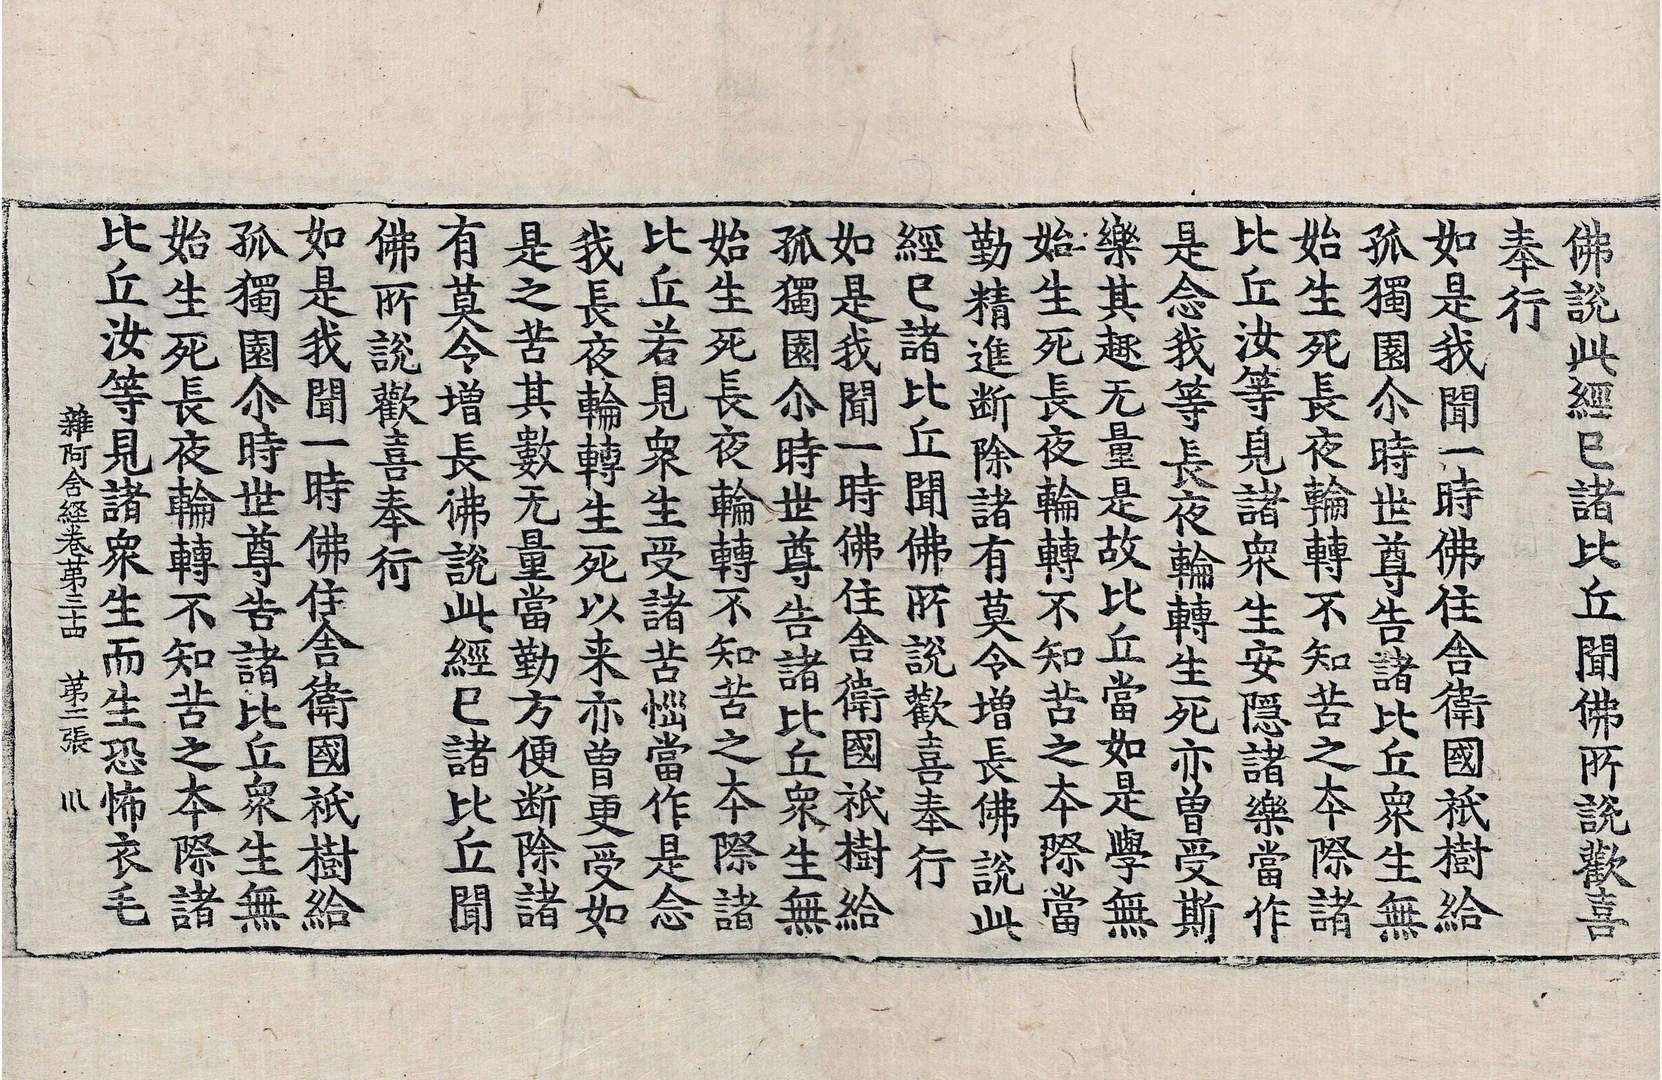 佛說此經已諸比丘聞佛所說歡喜
奉行
如是我聞一時佛住舍衛國祇樹給
孤獨園尒時世尊告諸比丘衆生無
始生死長夜輪轉不知苦之本際諸
比丘汝等見諸衆生安隱諸樂當作
是念我等長夜輪轉生死亦曾受斯
樂其趣无量是故比丘當如是學無
始生死長夜輪轉不知苦之本際當
勤精進断除諸有莫令增長佛說此
經已諸比丘聞佛所說歡喜奉行
如是我聞一時佛住舍衛國祇樹給
孤獨園尒時世尊告諸比丘衆生無
始生死長夜輪轉不知苦之本際諸
比丘若見衆生受諸苦惱當作是念
我長夜輪轉生死以来亦曾更受如
是之苦其數无量當勤方便断除諸
有莫令增長佛說此經已諸比丘聞
佛所說歡喜奉行
如是我聞一時佛住舍衛國祇樹給
孤獨園尒時世尊告諸比丘衆生無
始生死長夜輪轉不知苦之本際諸
比丘汝等見諸衆生而生恐怖衣毛
雜阿含経卷苐三十四　苐二張　川